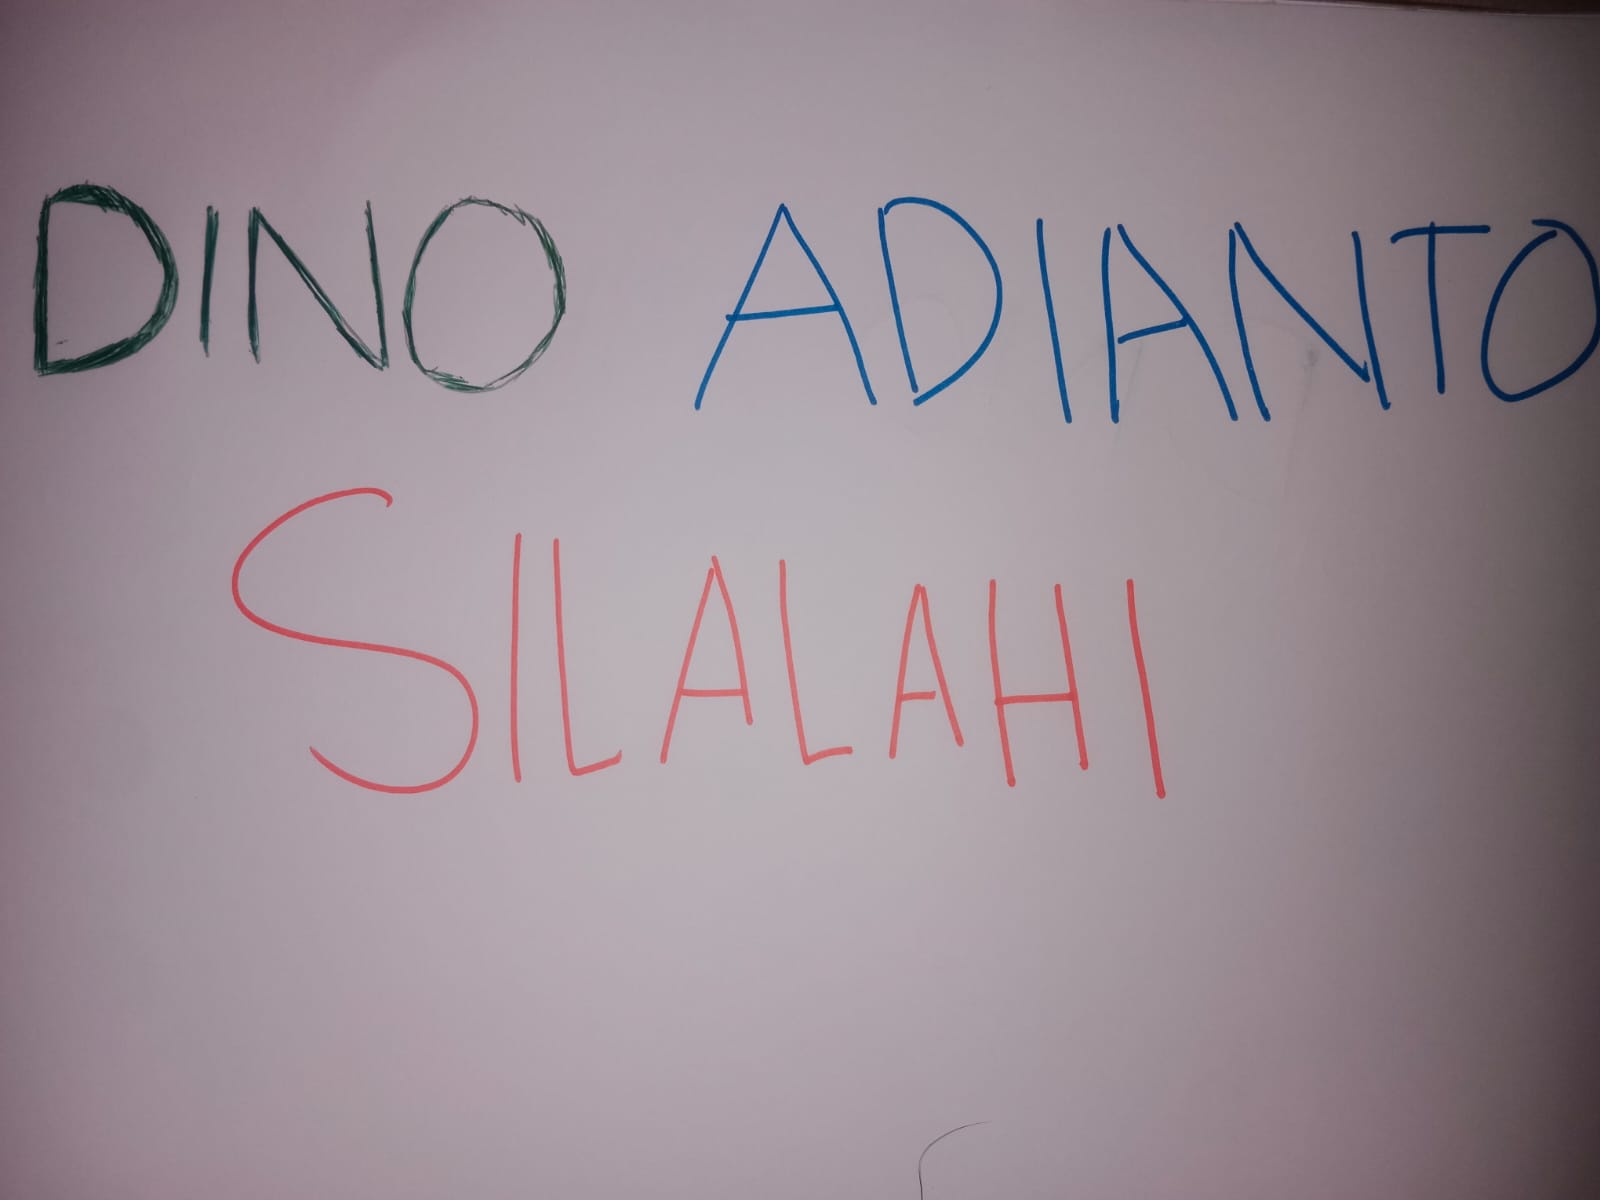 DINO ADIANTO
SILALAHI